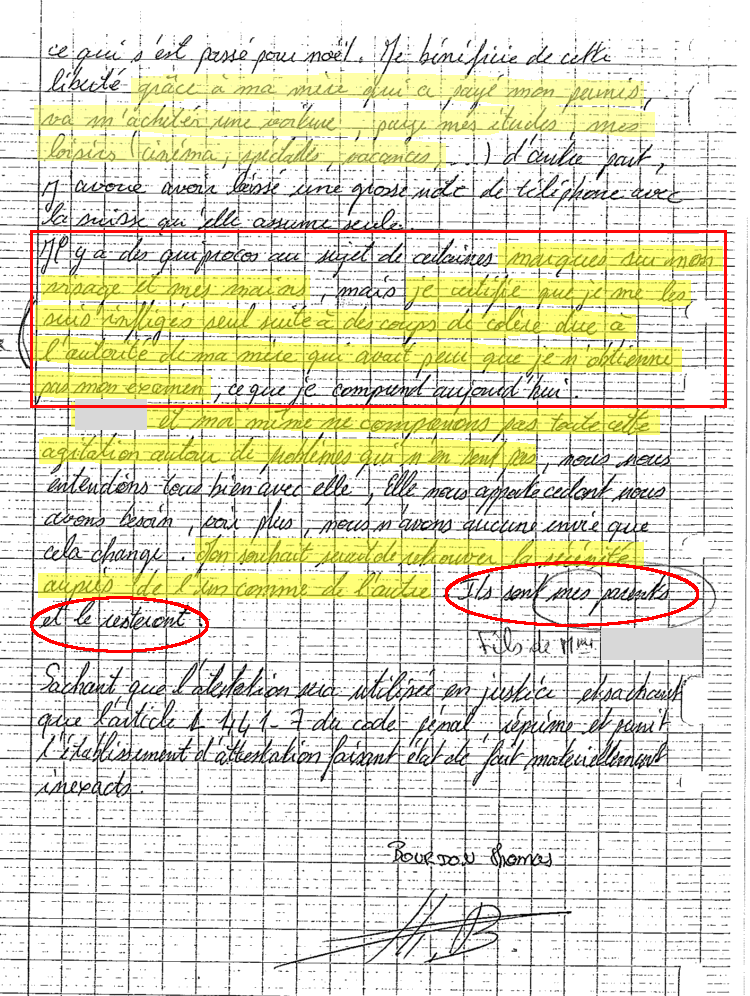 ce qui s'est passé pour noël. Je bénéficie de cette
liberté grâce à ma mère qui a payé mon permis,
va m'achetér une voiture, paye mes études, mes
loisirs (cinéma, spectacles, vacances, ...) d'autre part,
J'avoue avoir laissé une grosse note de téléphone avec
la suisse qu'elle assume seule.
Il y a des quiproquos au sujet de certaines marques sur mon
visage et mes mains, mais je certifie que je me les
suis infligés seul suite à des coups de colère due à
l'autorité de ma mère qui avait peur que je n'obtienne
pas mon examen, ce que je comprend aujourd'hui.
et moi même ne comprenons pas toute cette
agitation autour de problèmes qui n'en sont pas, nous nous
entendons tous bien avec elle, Elle nous apporte ce dont nous
avons besoin, voir plus, nous n'avons aucune envie que
cela change. Mon souhait serait de retrouver la sérénité
auprès de l'un comme de l'autre. Ils sont mes parents
et le resteront.
Fils de Mme
Sachant que l'atestation sera utilisée en justice et sachant
que l'article L 441-7 du code pénal, réprime et punit
l'établissement d'attestation faisant état de fait materiellement
inexacts.
BOURDON Thomas